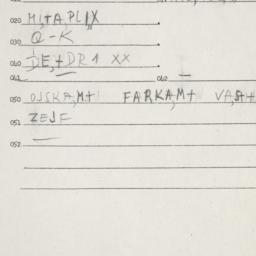 020 MI,+A,PL,X
030 Q-K
040 DE,+DR1 XX
041 042 —
050 OJSKA,M+ FARKA,M+ VA,S+
051 ZEJF
052 —